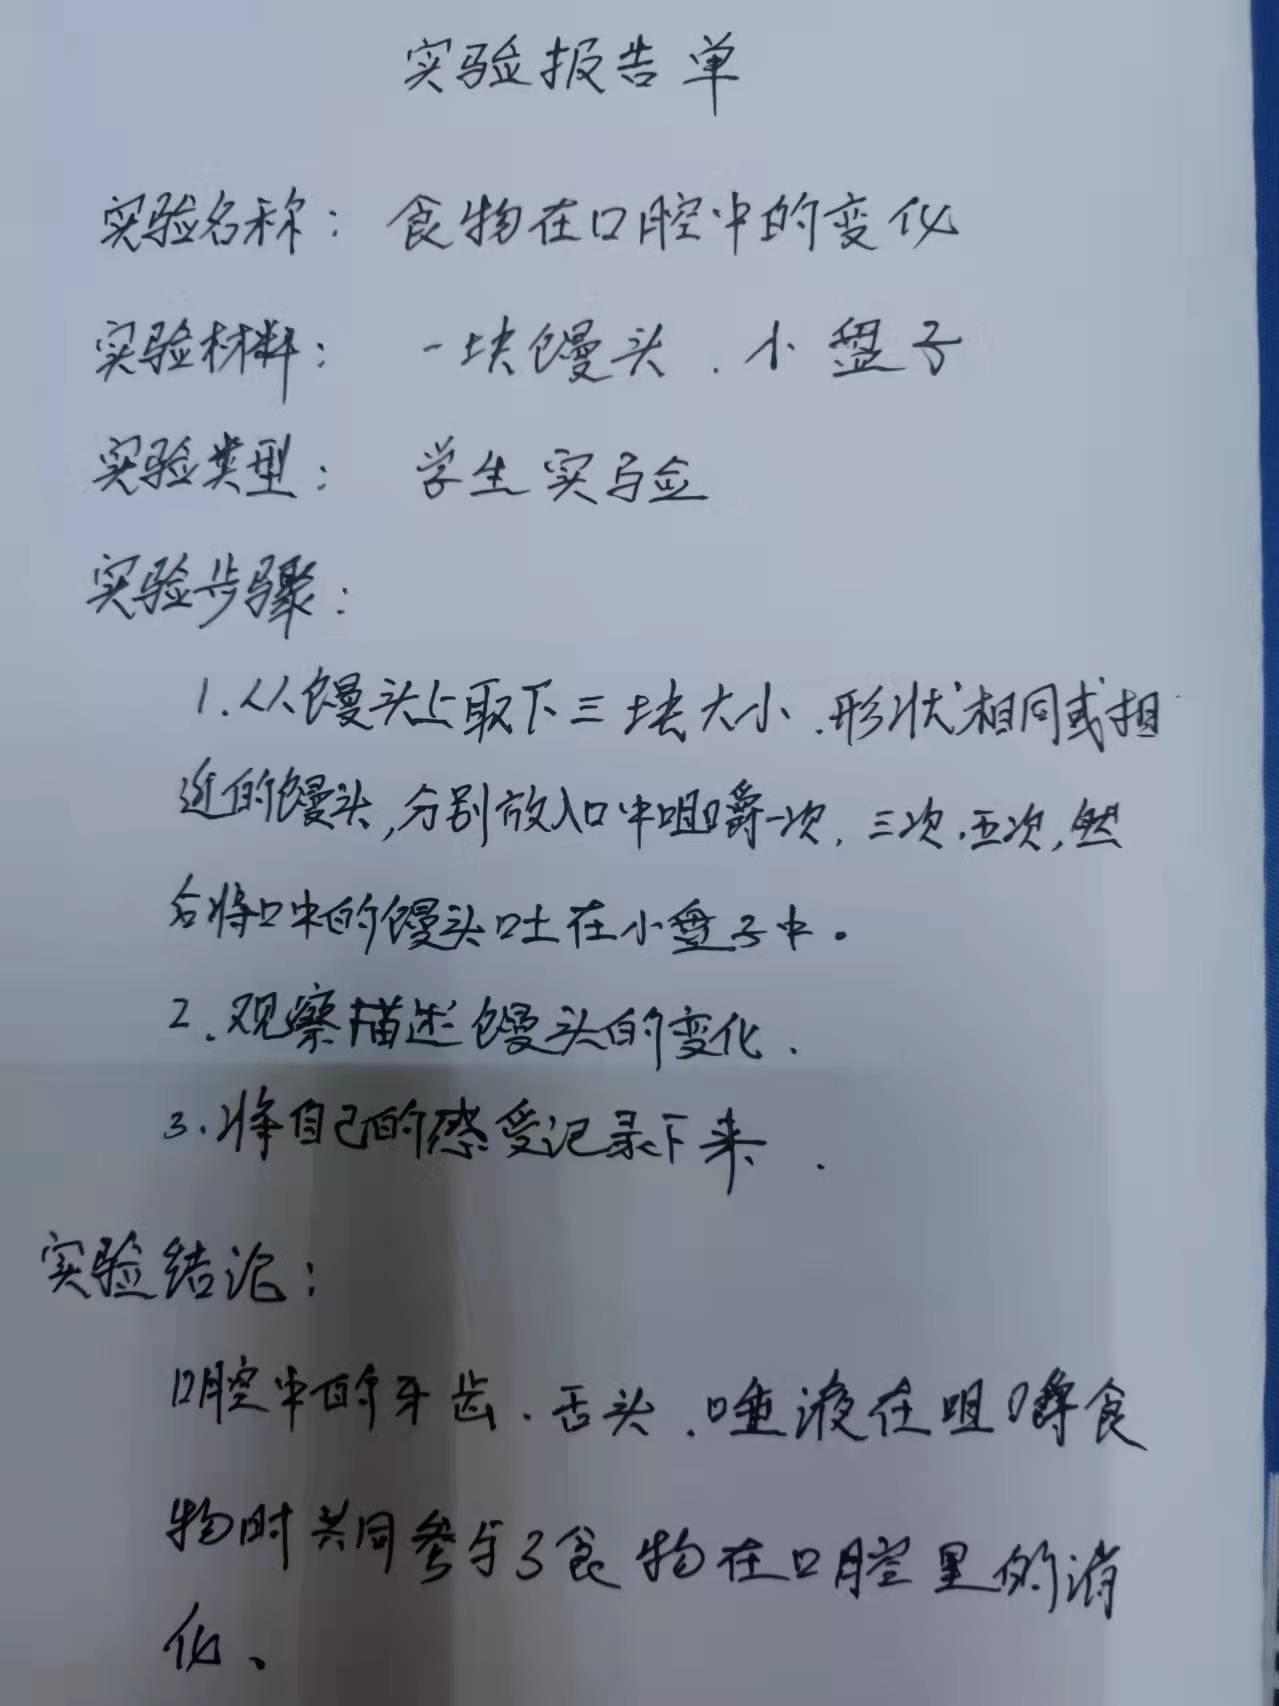 实验报告单
实验名称：食物在口腔中的变化
实验材料：一块馒头．小盘子
实验类型：学生实验
实验步骤：
1.从馒头上取下三块大小．形状相同或相
近的馒头,分别放入口中咀嚼一次．三次．五次,然
后将口中的馒头吐在小盘子中．
2.观察描述馒头的变化．
3.将自己的感受记录下来．
实验结论：
口腔中的牙齿．舌头．唾液在咀嚼食
物时共同参与了食物在口腔里的消
化、